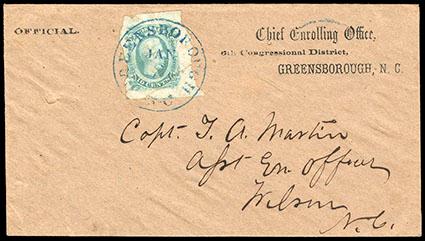 OFFICIAL.
Chief Enrolling Office,
6th Congressional District,
GREENSBOROUGH, N. C.
GREENSBOROUGH
JAN
N.C.
TEN CENTS
Capt. T. A. Martin
Asst En. Officer
Wilson
N.C.